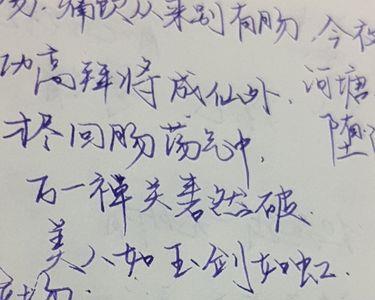 痛饮从来别有肠 今夜
功高拜将成仙外. 河塘
才尽回肠荡气中. 堕
万一禅关砉然破.
美人如玉剑如虹.